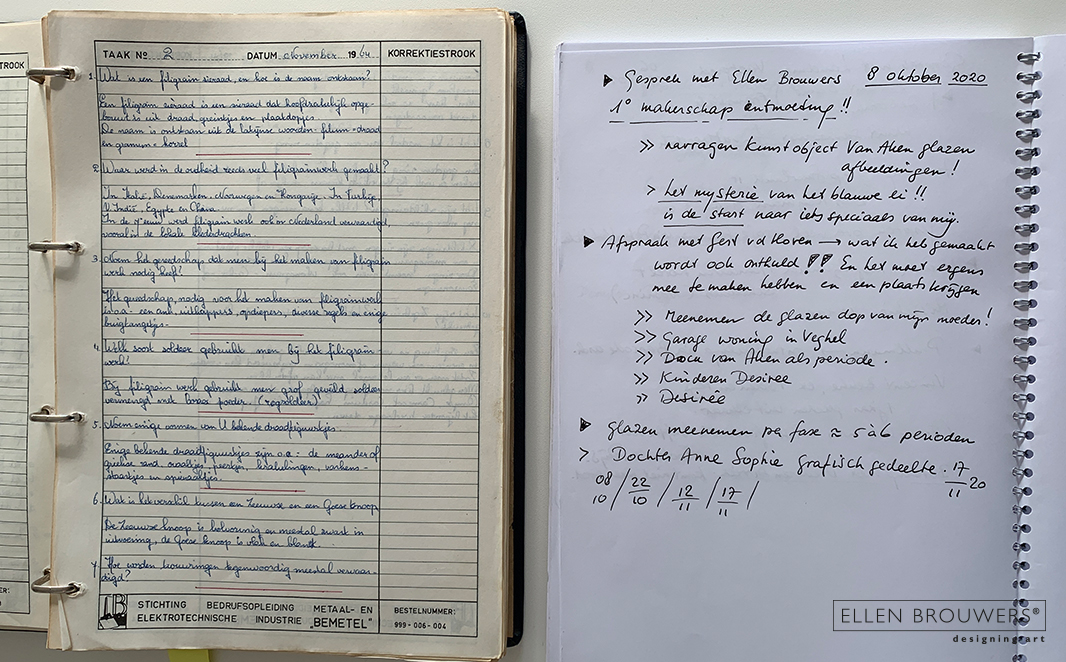 TROOK
TAAK Nº 2 DATUM November 1964 KORREKTIESTROOK
1. Wat is een filigrain sieraad, en hoe is de naam ontstaan?
Een filigrain sieraad is een sieraad dat hoofdzakelijk opge-
bouwt is uit draad greintjes en plaatdopjes.
De naam is ontstaan uit de latijnse woorden- filum = draad
en grannum = korrel
2. Waar werd in de oudheid reeds veel filigrainwerk gemaakt?
In Italië, Denemarken, Noorwegen en Hongarije. In Turkije,
V. Indië, Egypte en China.
In de eeuw werd filigrain werk ook in Nederland vervaardigd,
vooral in de lokale klederdrachten.
3. Noem het gereedschap dat men bij het maken van filigrain
werk nodig heeft?
Het gereedschap, nodig voor het maken van filigrainwerk
is o.a. een anke uitkappers, opdiepers, diverse zegels en enige
buigtangetjes.
4. Welk soort soldeer gebruikt men bij het filigrain-
werk?
Bij filigrain werk gebruikt men grof gevijld soldeer
vermengd met borax poeder.
5. Noem enige vormen van U bekende draadfiguurtjes.
Enige bekende draadfiguurtjes zijn o.a.: de meander of
griekse rand, ovaaltjes, peertjes, krakelingen, varkens-
staartjes en spiraaltjes.
6. Wat is het verschil tussen een Zeeuwse en een Goese knoop
De Zeeuwse knoop is bolvormig en meestal zwart in
uitvoering, de Goese knoop is vlak en blank.
7. Hoe worden trouwringen tegenwoordig meestal vervaar-
digd?
STICHTING BEDRIJFSOPLEIDING METAAL- EN
ELEKTROTECHNISCHE INDUSTRIE „BEMETEL”
BESTELNUMMER:
999-006-004
Gesprek met Ellen Brouwers 8 oktober 2020
1º makerschap ontmoeting !!
>> navragen Kunstobject Van Aken glazen
afbeeldingen !
> het mysterie van het blauwe ei !!
is de start naar iets speciaals van mij.
Afspraak met Gert vd Hoven → wat ik heb gemaakt
wordt ook onthuld !! En het moet ergens
mee te maken hebben en een plaats krijgen
>> Meenemen de glazen dop van mijn moeder!
>> Garage woning in Veghel
>> Doek van Aken als periode.
>> Kinderen Desiree
>> Desirée
glazen meenemen per fase ≈ 5 à 6 perioden
> Dochter Anne Sophie grafisch gedeelte. 17/11 20
08/10 / 22/10 / 12/11 / 17/11 /
ELLEN BROUWERS®
designing art